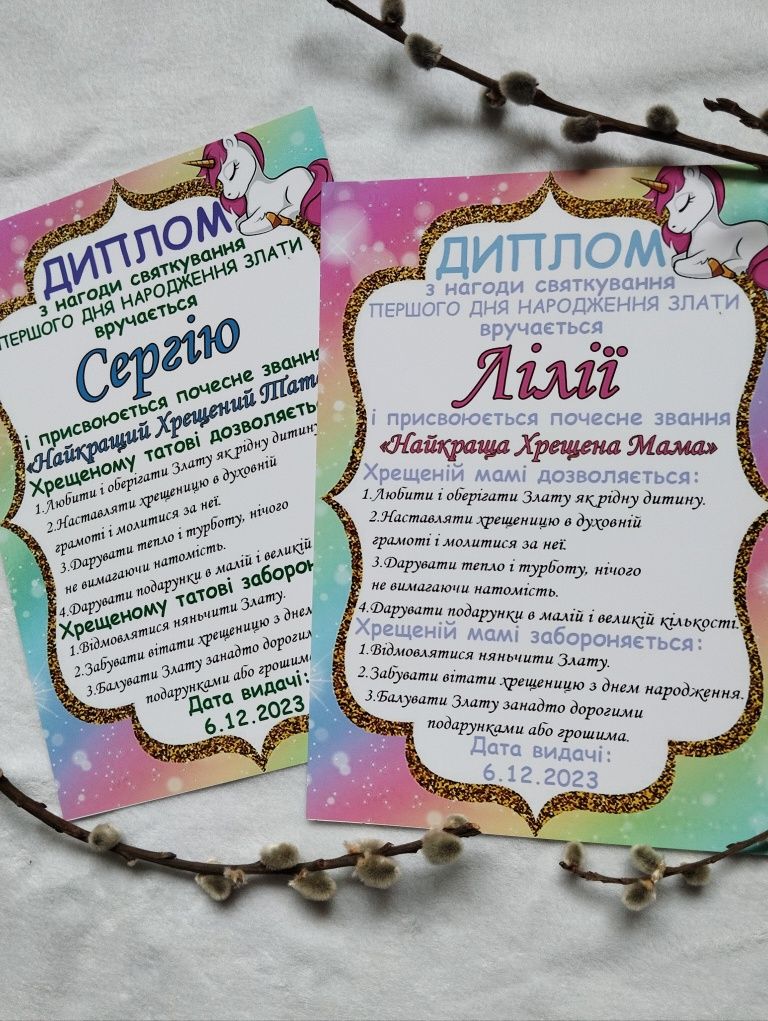 ДИПЛОМ
з нагоди святкування
ПЕРШОГО ДНЯ НАРОДЖЕННЯ ЗЛАТИ
вручається
Сергію
і присвоюється почесне звання
«Найкращий Хрещений Тато
Хрещеному татові дозволяєть
1.Любити і оберігати Злату як рідну дитину
2.Наставляти хрещеницю в духовній
грамоті і молитися за неї.
3.Дарувати тепло і турботу, нічого
не вимагаючи натомість.
4.Дарувати подарунки в малій і великій
Хрещеному татові заборон
1.Відмовлятися няньчити Злату.
2.Забувати вітати хрещеницю з днем
3.Балувати Злату занадто дорогими
подарунками або грошима
Дата видачі:
6.12.2023
ДИПЛОМ
з нагоди святкування
ПЕРШОГО ДНЯ НАРОДЖЕННЯ ЗЛАТИ
вручається
Лілії
і присвоюється почесне звання
«Найкраща Хрещена Мама»
Хрещеній мамі дозволяється:
1.Любити і оберігати Злату як рідну дитину.
2.Наставляти хрещеницю в духовній
грамоті і молитися за неї.
3.Дарувати тепло і турботу, нічого
не вимагаючи натомість.
4.Дарувати подарунки в малій і великій кількості.
Хрещеній мамі забороняється:
1.Відмовлятися няньчити Злату.
2.Забувати вітати хрещеницю з днем народження.
3.Балувати Злату занадто дорогими
подарунками або грошима.
Дата видачі:
6.12.2023